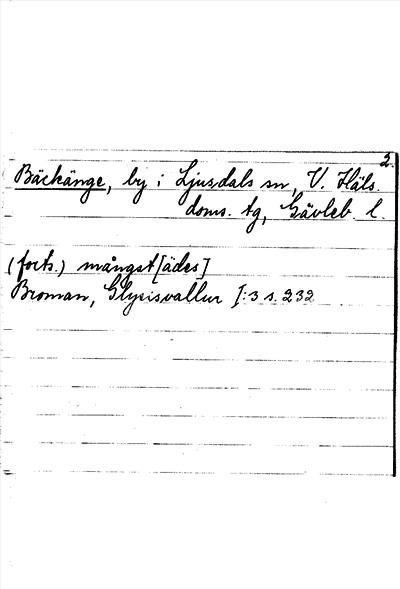 2.
Bäckänge, by i Ljusdals sn, V. Häls.
doms. tg, Gävleb. l.
(forts.) mångst[ädes]
Broman, Glysisvallur I:3 s. 232